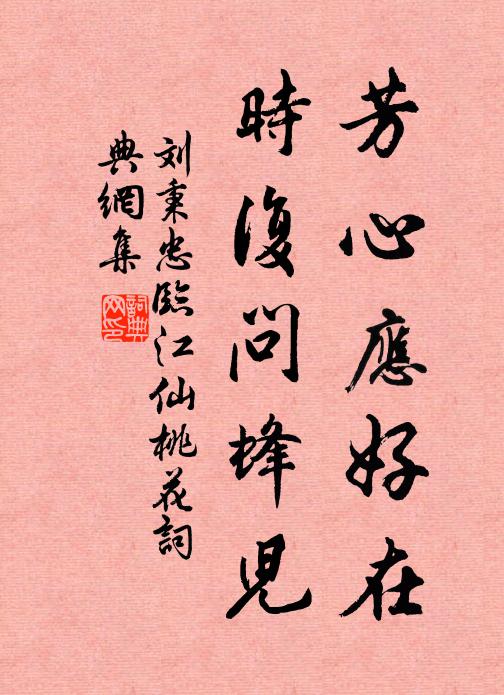 芳心應好在
時復問蜂兒
刘秉忠臨江仙桃花詞
典網集
詞典网印